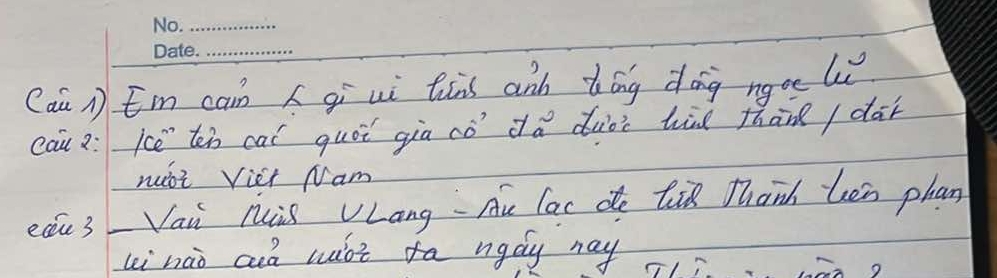 No. ................
Date. ................
Câu 1) Em cảm gì hình ảnh trống đồng ngọc lũ
Câu 2: Kể tên các quốc gia cổ đã được hình thành / đất
nước Việt Nam
câu 3 - Văn Minh VLang - Âu lạc đc hình Thành trên phạm
vi nào của nước ta ngày nay